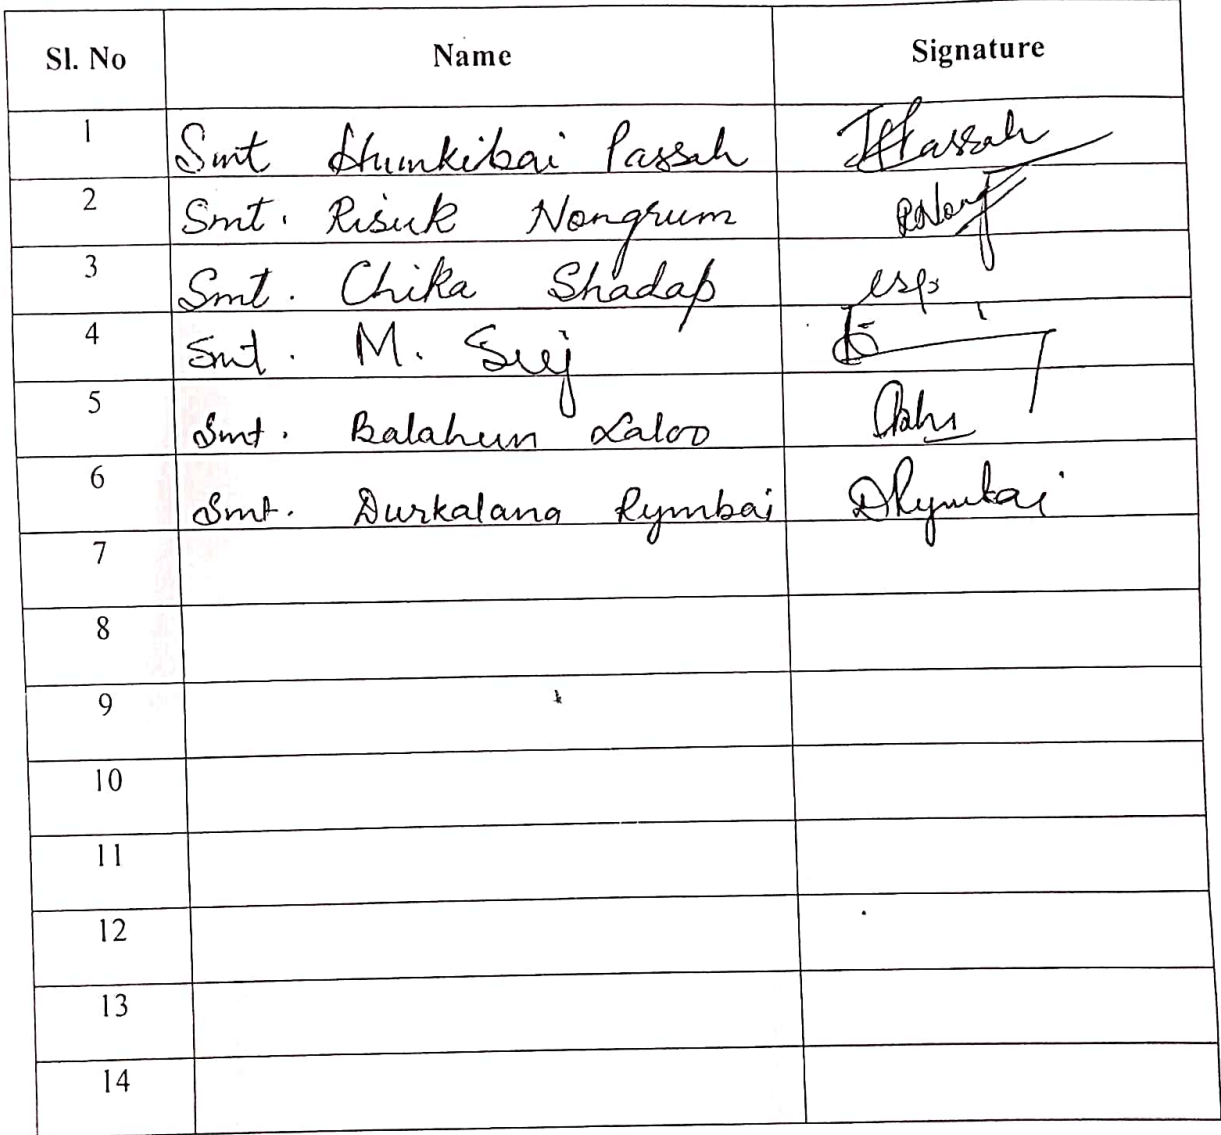 Sl. No Name Signature
1 Smt Hunkibai Passah
2 Smt. Risuk Nongrum
3 Smt. Chika Shadap
4 Smt. M. Suj
5 Smt. Balahun Laloo
6 Smt. Durkalana Rymbai DRymbai
7
8
9
10
11
12
13
14